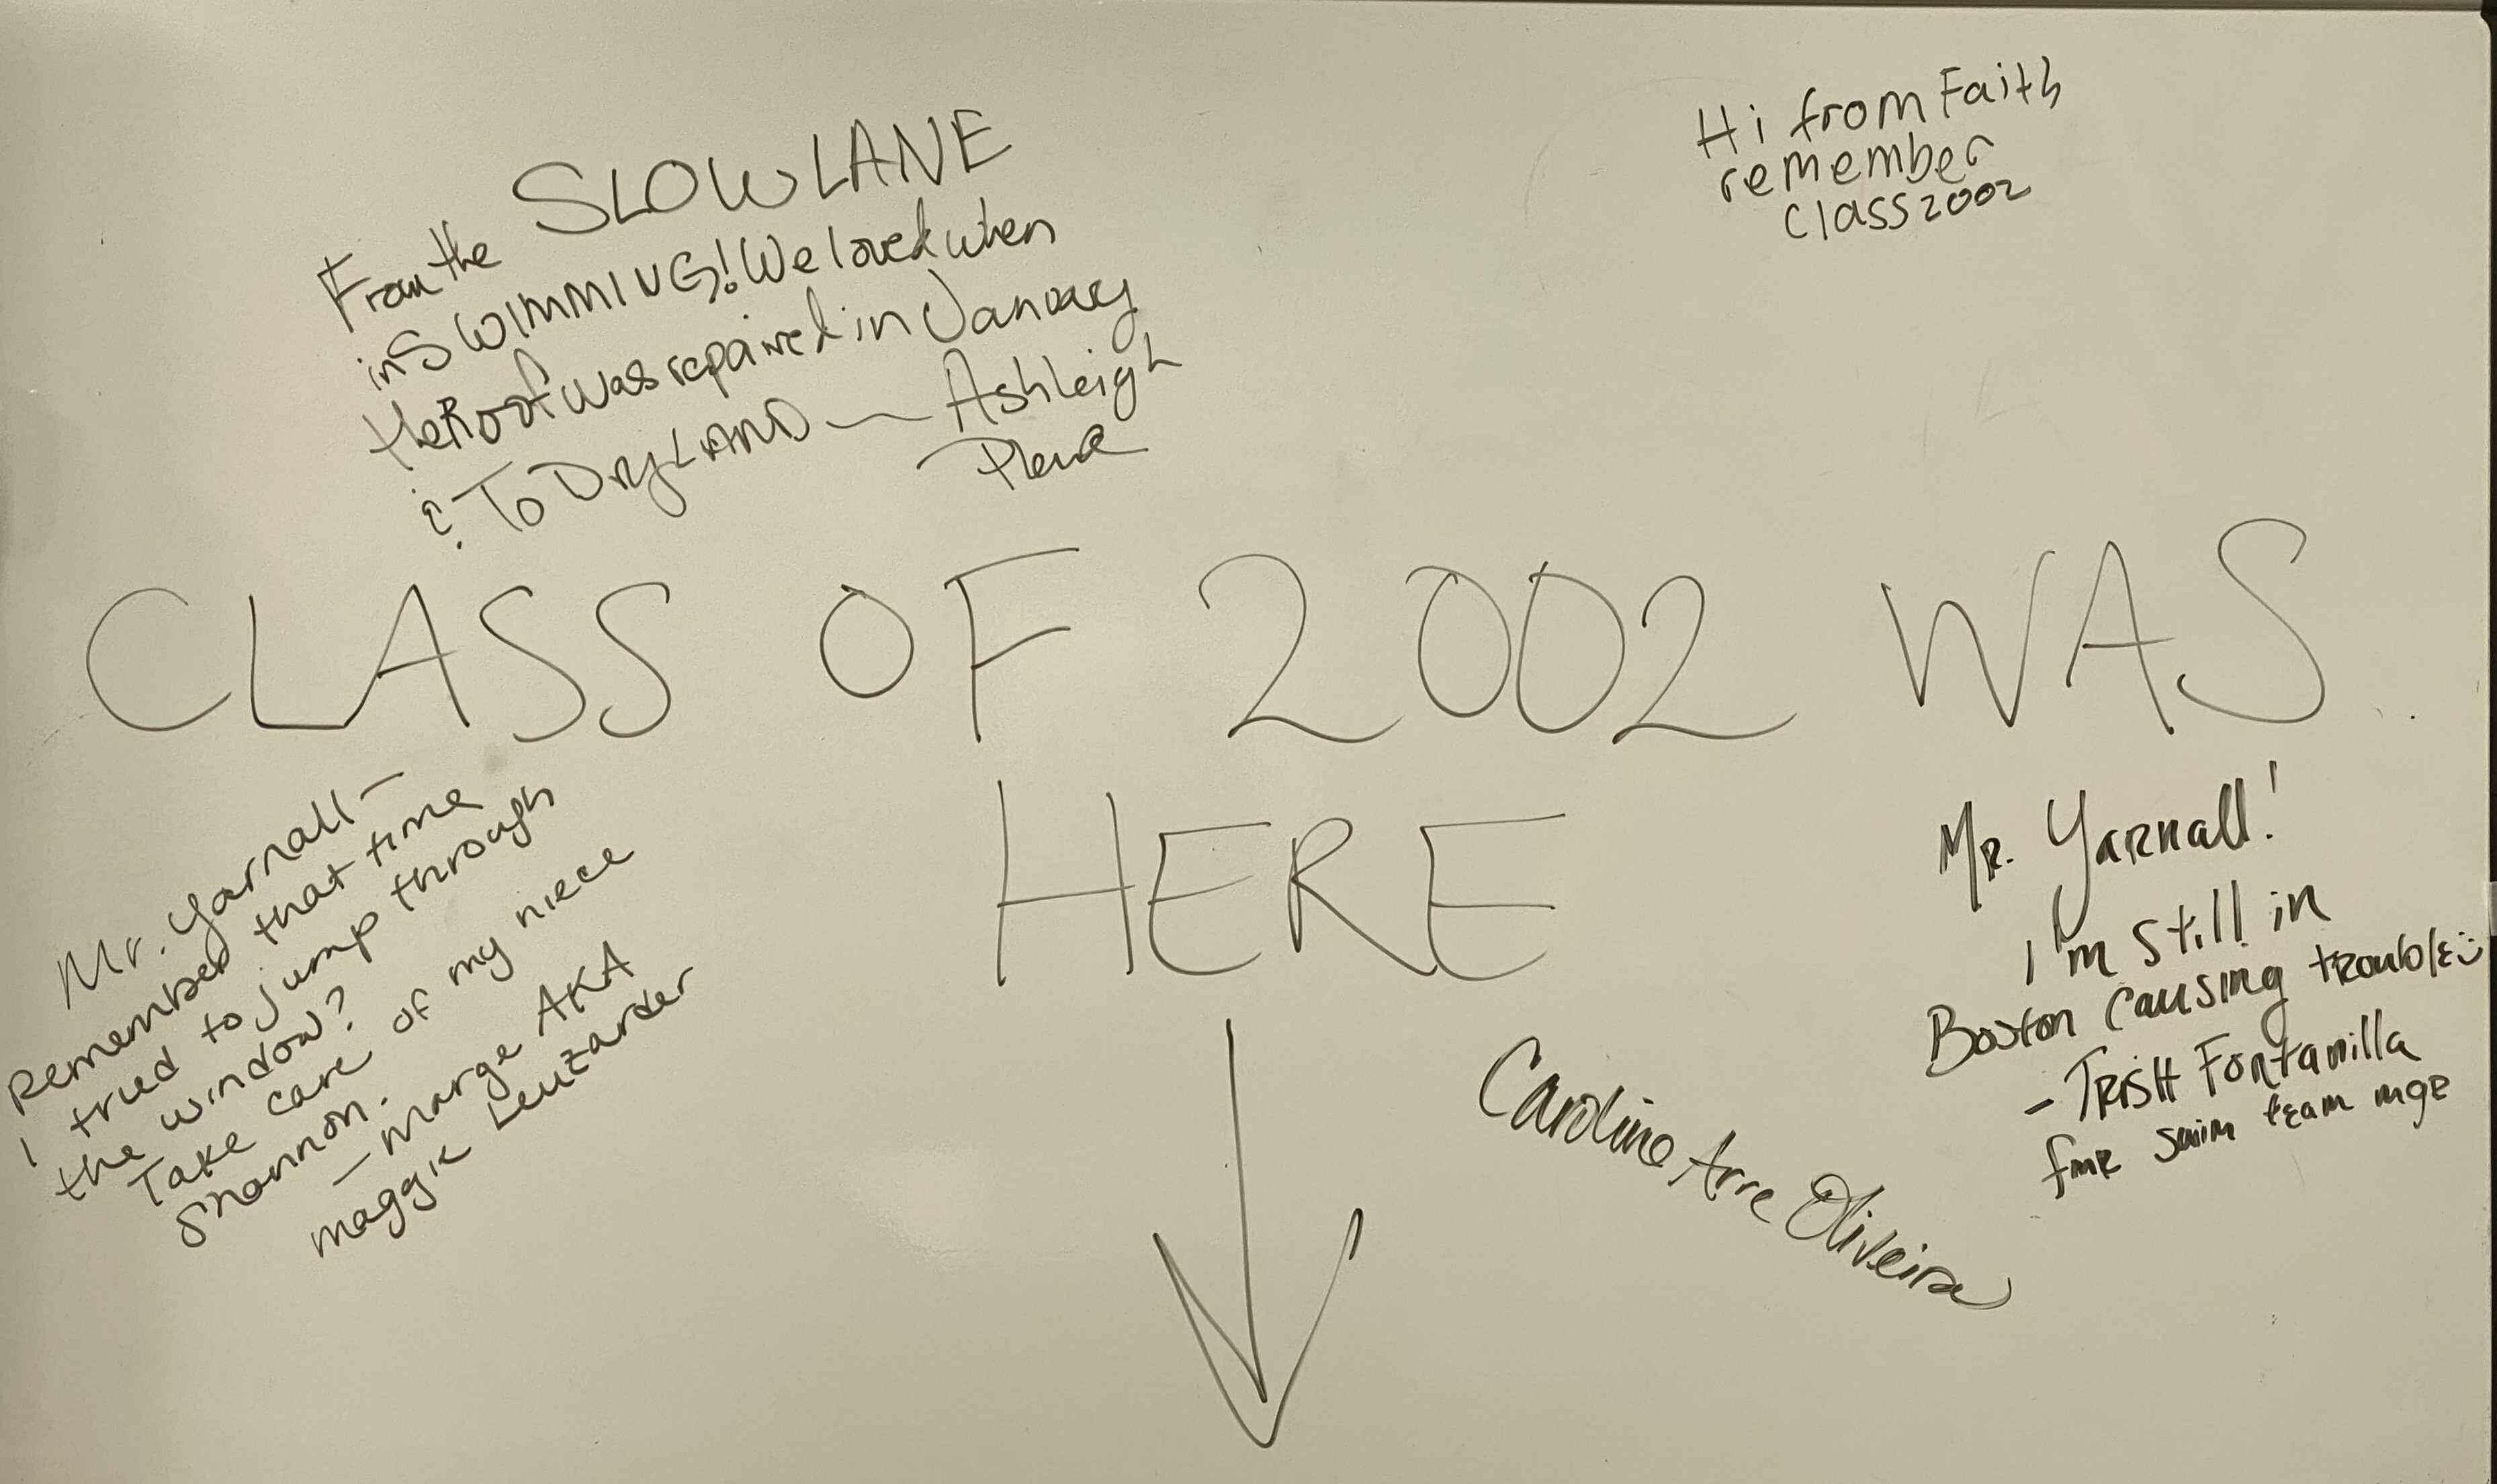 From the SLOW LANE
in SWIMMING! We loved when
the Roof was repaired in January
& To Dry LAND — Ashleigh
Hi from Faith
remember
Class 2002
CLASS OF 2002 WAS
HERE
Mr. Yarnall —
Remember that time
I tried to jump through
the window?
Take care of my niece
Shannon.
— Marge AKA
Maggie Leuzarder
Mr. Yarnall!
I'm still in
Boston causing trouble :)
- Trish Fontanilla
fmr swim team mgr
Caroline Arre Oliveira